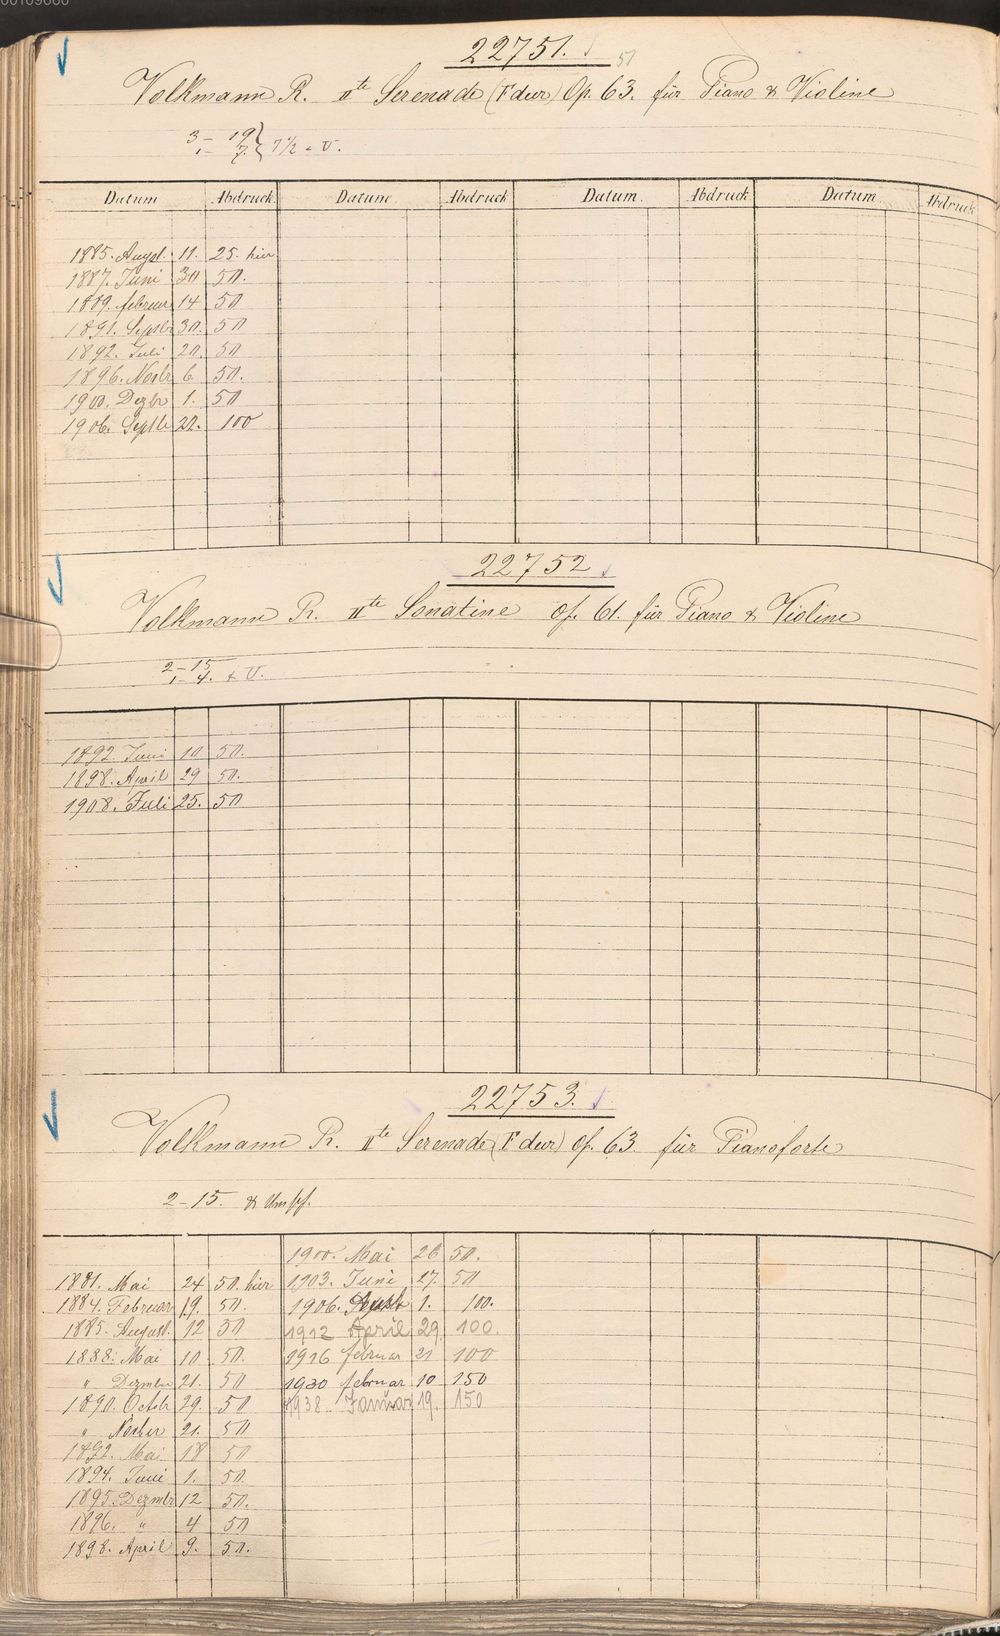 22751.
51
Volkmann R. IIte Serenade (F dur) Op. 63. für Piano & Violine
3 – 19
1 – 7. } 7 1/2 + V.
Datum Abdruck Datum Abdruck Datum Abdruck Datum Abdruck
1885. Augst. 11. 25. hier
1887. Juni 30 50.
1889. februar 14 50
1891. Septbr 30. 50
1892. Juli 20. 50
1896. Novbr 6 50.
1900. Dezbr 1. 50
1906. Septbr 22. 100
22752
Volkmann R. IIte Sonatine Op. 61. für Piano & Violine
2 – 15
1 – 4. + V.
1892 Juni 10 50.
1898. April 29 50.
1908. Juli 25. 50
22753.
Volkmann R. IIte Serenade (F dur) Op. 63. für Pianoforte
2 – 15. & Umschl.
1900. Mai 26 50.
1881. Mai 24 50. hier 1903. Juni 27. 50
1884. Februar 19. 50. 1906. 1. 100.
1885. August. 12 50 1912 April 29. 100.
1888. Mai 10 50. 1916 februar 21 100
" Dezmbr 21. 50 1930 februar 10 150
1890. Octbr 29. 50 1938. Januar 19. 150
" Novbr 21. 50
1892. Mai 18 50
1894. Juni 1. 50
1895. Dezmbr 12 50.
1896. " 4 50
1898. April 9. 50.